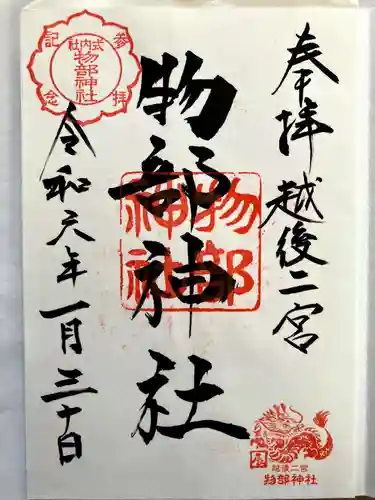 奉拝 越後二宮
物部神社
物部
神社
令和六年一月三十日
参拝記念
式内社
物部神社
辰
越後二宮
物部神社